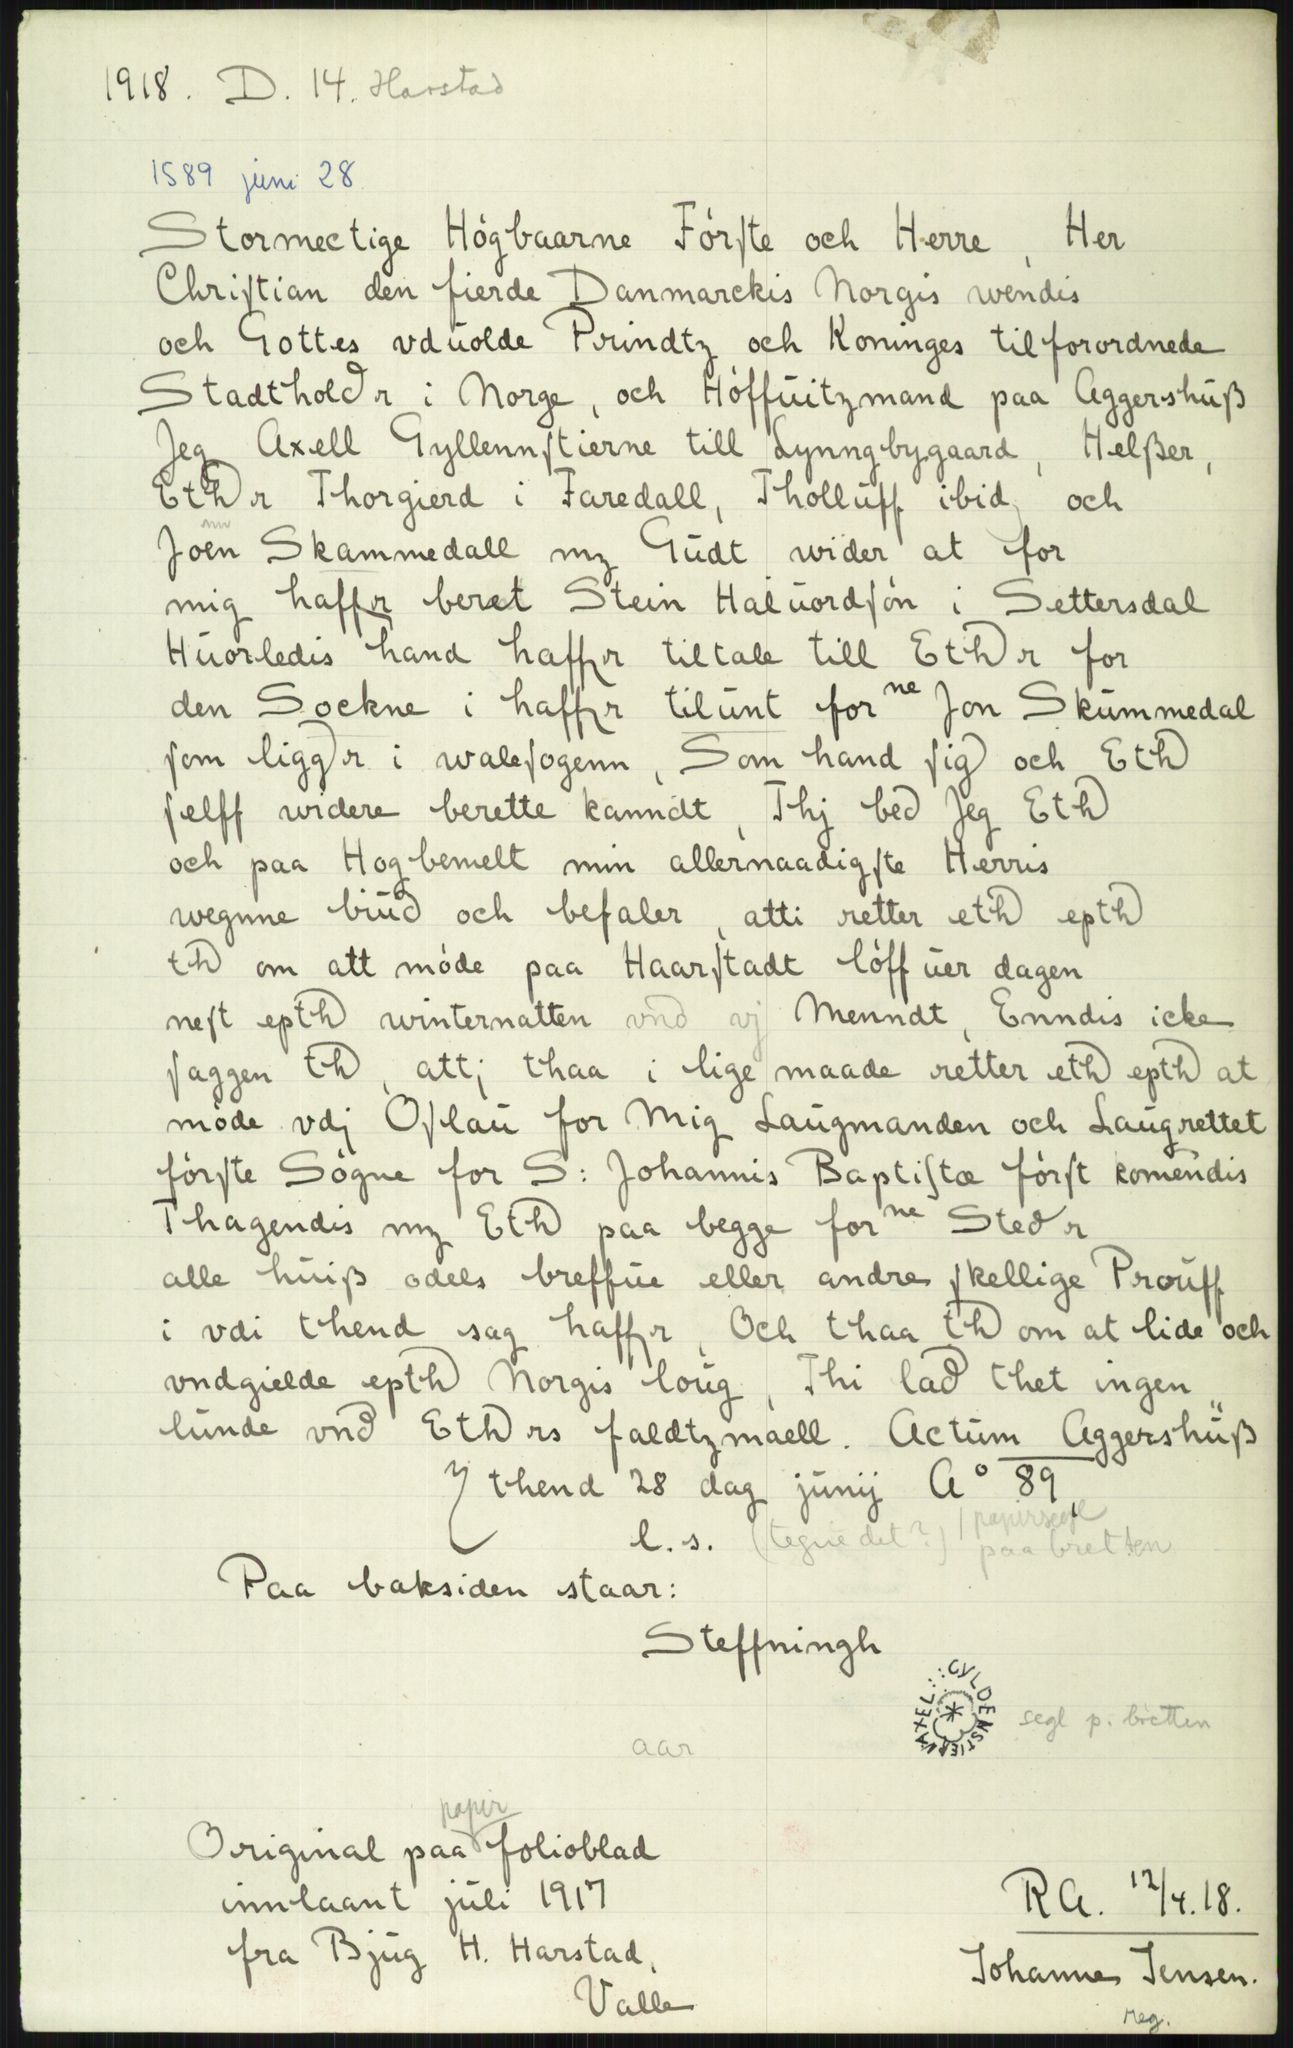 1918. D. 14. Harstad
1589 juni 28
Stormectige Högbaarne Förſte och Herre, Her
Chriſtian den fierde Danmarckis Norgis wendis
och Gottes vduolde Prindtz och Koninges tilforordnede
Stadtholdr i Norge, och Höffuitzmand paa Aggershuß
Jeg Axell Gyllennſtierne till Lynngbygaard, Helßer,
Ethr Thorgierd i Faredall, Tholluff ibid, och
Joen Skammedall mz Gudt wider at for
mig haffr beret Stein Haluordſön i Settersdal
Huorledis hand haffr tiltale till Ethr for
den Sockne i haffr tilunt forne Jon Skummedal
ſom liggr i waleſogenn, Som hand ſig och Eth
ſelff widere berette kanndt, Thj bed Jeg Eth
och paa Hogbemelt min allernaadigſte Herris
wegnne biud och befaler, atti retter eth epth
th om att möde paa Haarſtadt löffuer dagen
neſt epth winternatten vnd vj Menndt, Enndis icke
ſaggen th, attj thaa i lige maade retter eth epth at
möde vdj Oſlau for Mig Laugmanden och Laugrettet
förſte Sögne for S: Johannis Baptiſtæ förſt komendis
Thagendis mz Eth paa begge forne Stedr
alle huiß odels breffue eller andre ſkellige Prouff
i vdi thend sag haffr, Och thaa th om at lide och
vndgielde epth Norgis loug, Thi lad thet ingen
lunde vnd Ethrs faldtzmaell. Actum Aggershuß
thend 28 dag junij Aº 89,
l. s. (tegne det?) / papirsegl
paa bretten
Paa baksiden staar:
Steffningh
AXEL GYLDENSTIERN
segl p. bretten
aar
Original paa papir folioblad
innlaant juli 1917
fra Bjug H. Harstad,
Valle
RA. 12/4.18.
Johanne Jensen.
reg.